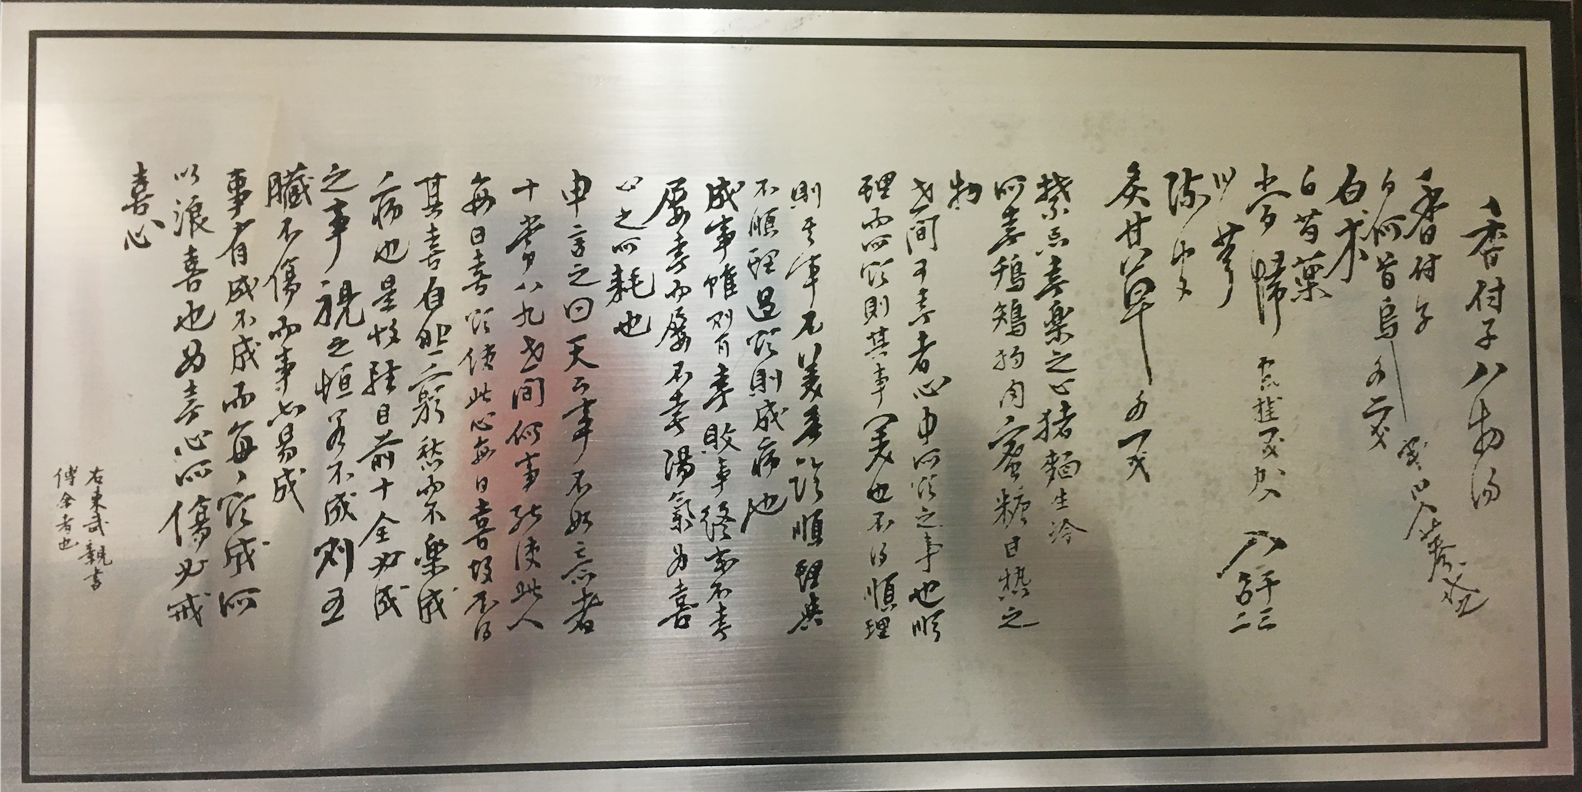 香付子八物湯
香付子
白何首烏 各二戔
白朮
白芍藥
當歸
川芎
陳皮
炙甘草 各一戔
禁忌喜樂之心猪麵生冷
所喜鷄雉狗肉蜜糖甘熱之
物
世間可喜者心中所欲之事也順
理而所欲則其事美也不得順理
則其事不美
不順理過欲則成病也
成事惟則有喜敗事終亦不喜
屢喜而屢不喜陽氣為喜
心之所耗也
申言之曰天下事不如意者
十常八九世間何事能使此人
每日喜欲使此心每日喜故不得
其喜自能不窮愁而不樂成
病也是故經目前十全必成
之事視之恒若不成則五
臟不傷而事亦易成
事有成不成而每每欲成所
以浪喜也為喜心所傷必戒
喜心
右東武親書
傳金者也